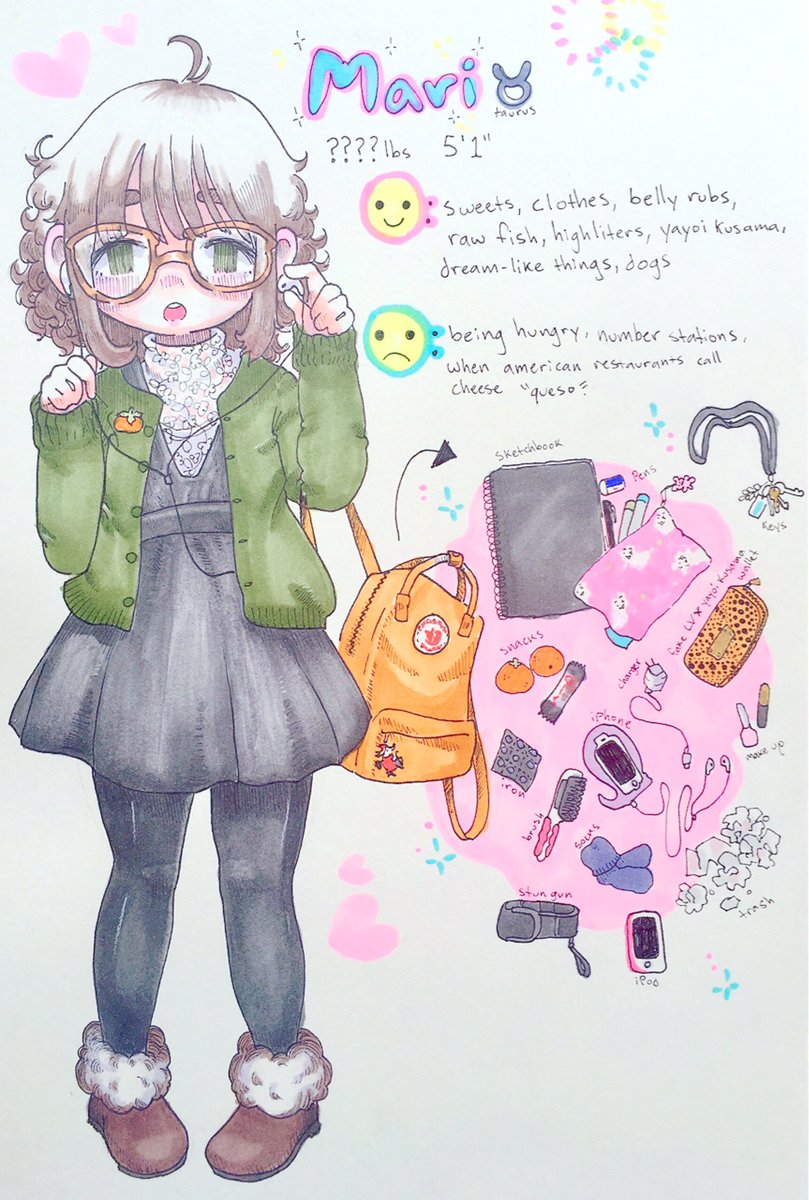 Mari
taurus
???? lbs 5'1"
: sweets, clothes, belly rubs,
raw fish, highliters, yayoi kusama,
dream-like things, dogs
: being hungry, number stations,
when american restaurants call
cheese "queso"
sketchbook
pens
keys
fake LV x yayoi kusama
wallet
snacks
charger
iphone
make up
iron
brush
socks
stun gun
trash
iPod